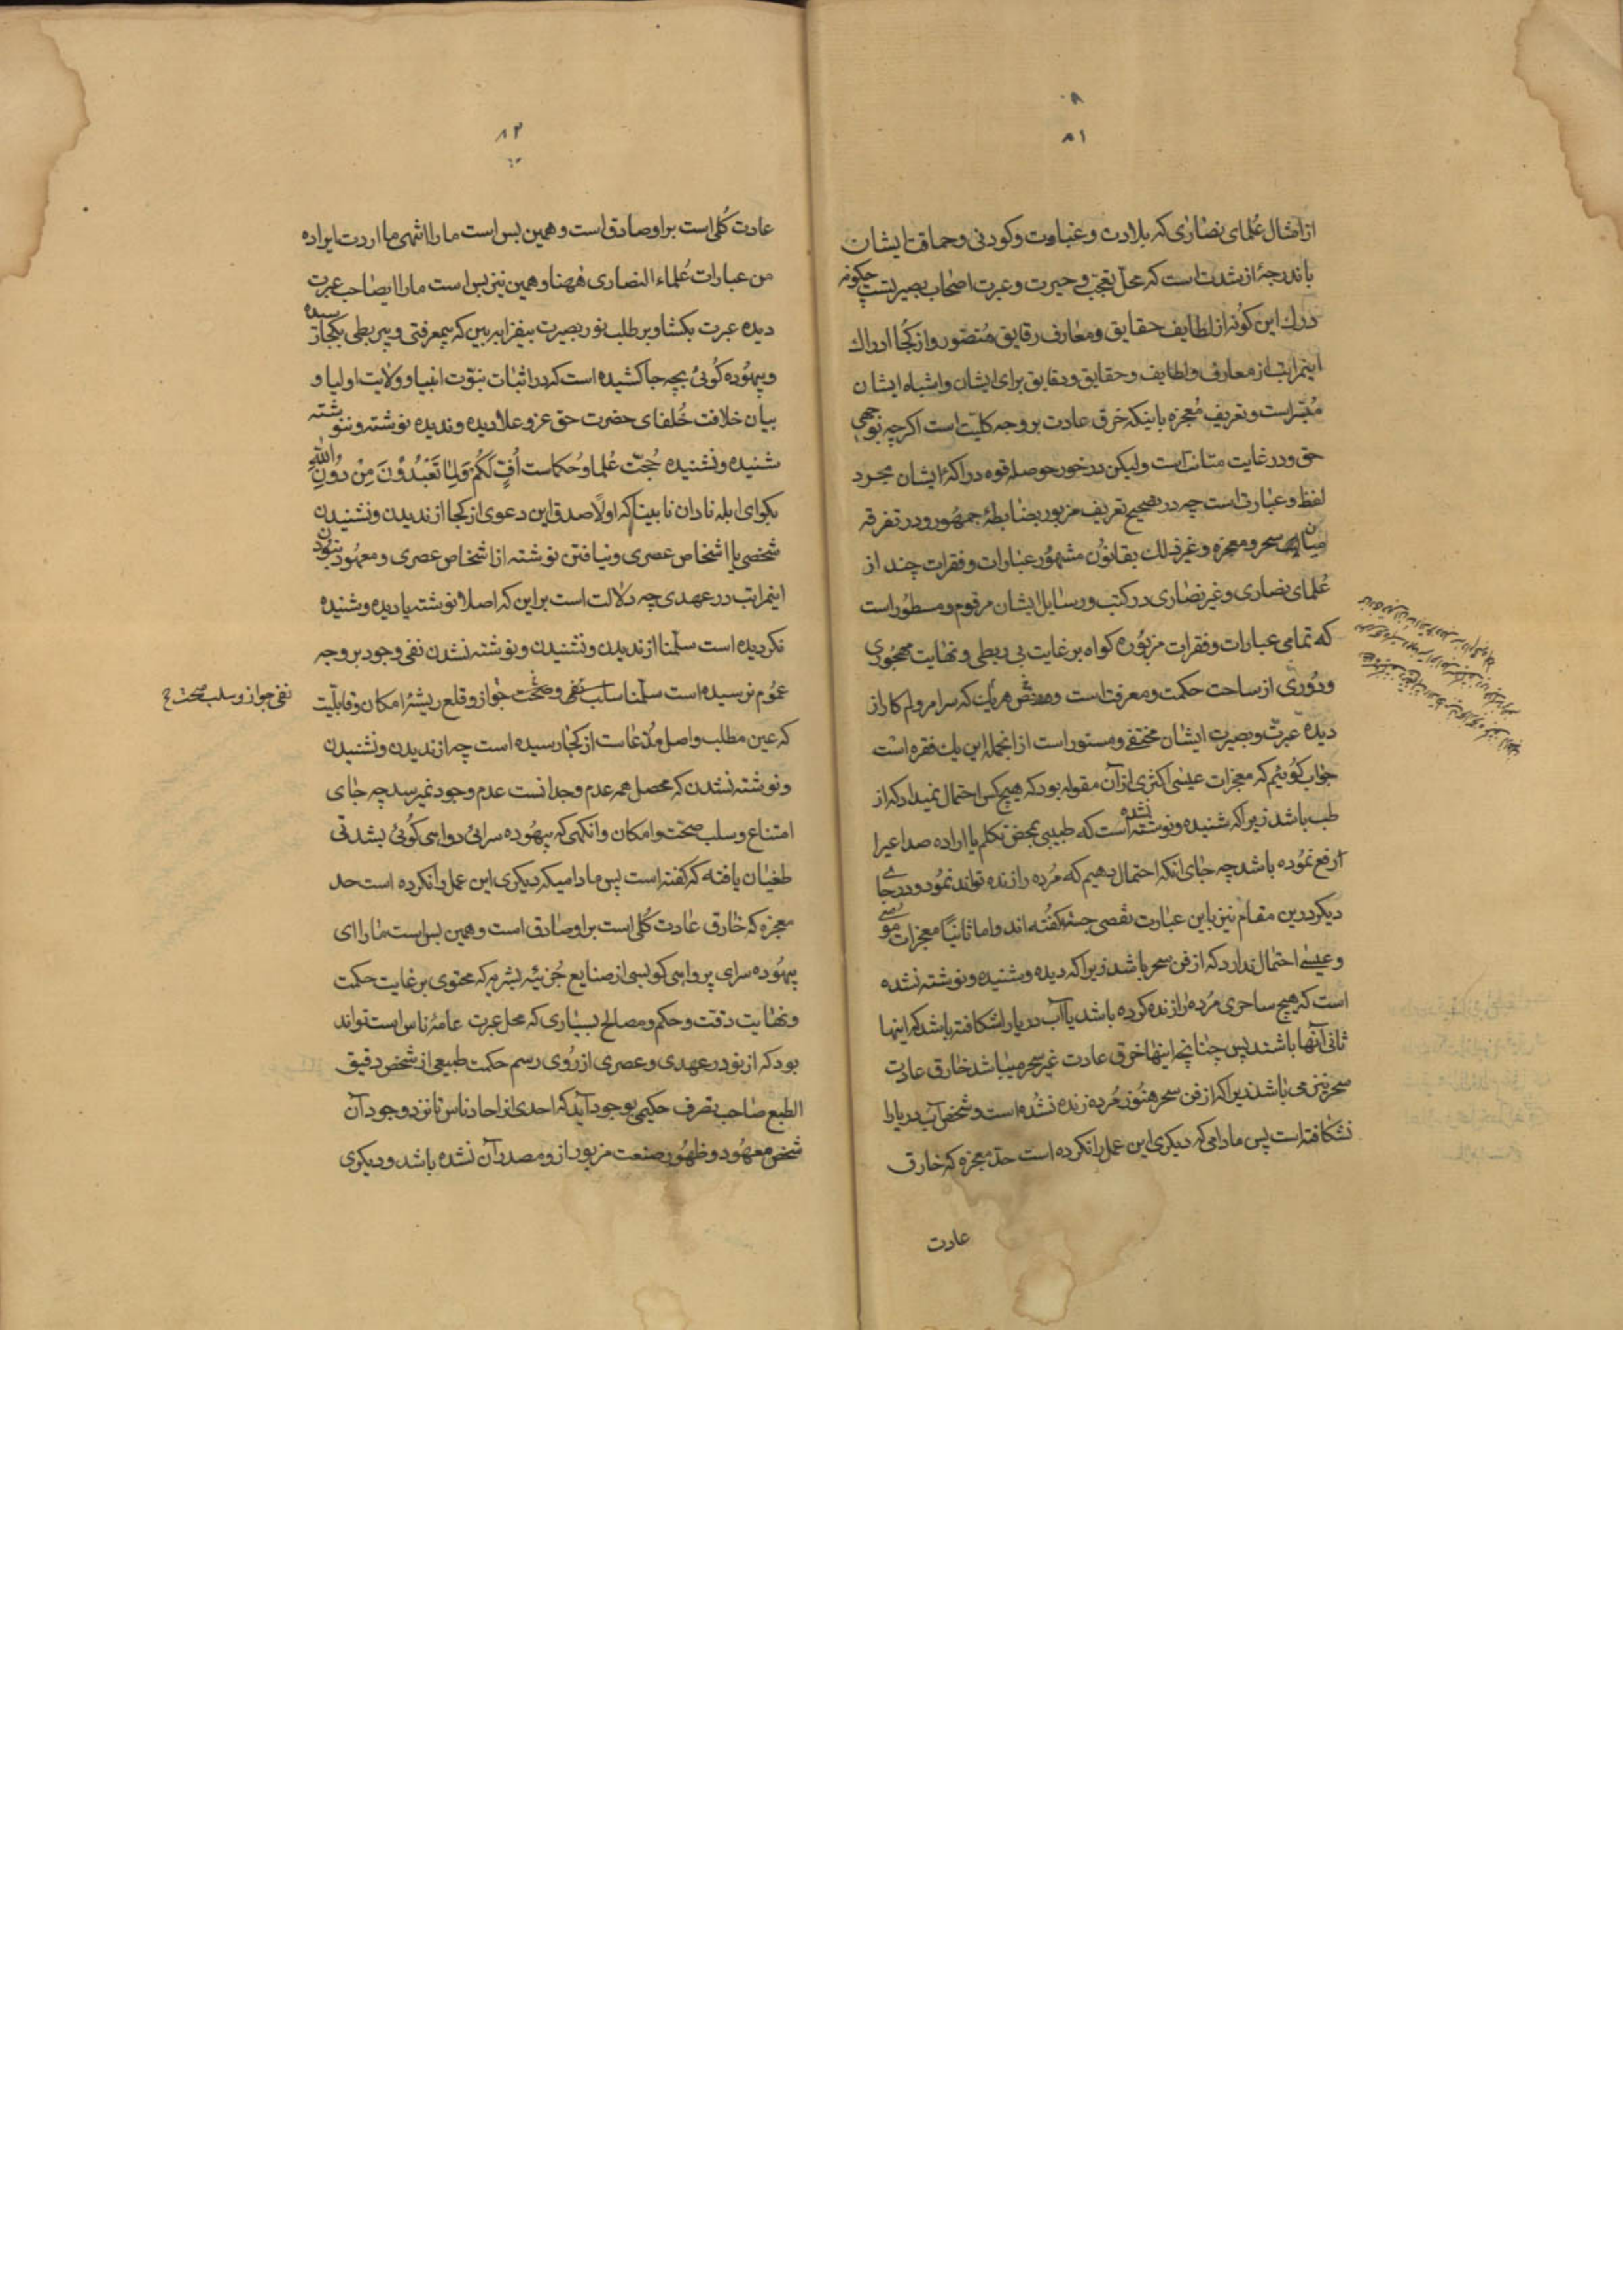 ۸۱
از امثال عُلمای نصاری که بلادت و غباوت و کودنی و حماقت ایشان
باندرجهٔ از شدت است که محلّ تعجّب و حیرت و عبرت اصحاب بصیرتست چکونه
درك این کونه از لطایف حقایق و معارف رقایق مُتصّور و از کجا ادراك
اینمراتب از معارف و لطایف و حقایق و دقایق برای ایشان و اشباه ایشان
مُیسّر است و تعریف مُعجزه باینکه خرق عادت بر وجه کلیّت است اکرچه بوجهی
حق و در غایت متانت است ولیکن در خور حوصله قوه درّاکهٔ ایشان مجرد
لفظ و عبارتی است چه در تصحیح تعریف مزبور بضابطهٔ جمهُور و در تفرقه
میان سحر و معجزه و غیر ذلك بقانوُن مشهُور عبارات و فقرات چند از
عُلمای نصاری و غیر نصاری در کتب و رسایل ایشان مرقوم و مسطوُر است
که تمامی عبارات و فقرات مزبوُره کواه بر غایت بی ربطی و نهایت مهجُوری
و دوُری از ساحت حکمت و معرفت است هریك که سرامر ولم کار از
دیدهٔ عبرت و بصیرت ایشان مختفی و مستور است از انجمله این یك فقره است
جواب کوُئیم که معجزات عیسی اکثری از آن مقوله بود که هیچ کس احتمال نمیداد که از
طب باشد زیرا که شنیده و نوشته نشده است که طبیبی بمحض تکلم یا اراده صداعیرا
رفع نموُده باشد چه جای انکه احتمال دهیم که مُرده را زنده تواند نموُد و در جای
دیکر درین مقام نیز باین عبارت تفصی جسته کفُته اند و اما ثانیًا معجزات موُسی
و عیسی احتمال ندارد که از فن سحر باشد زیرا که دیده و شنیده و نوشته نشده
است که هیچ ساحری مُرده را زنده کرده باشد یا آب دریا را شکافته باشد که اینها
ثانی آنها باشند پس چنانچه اینها خرق عادت غیر سحر میباشد خارق عادت
سحر نیز می باشند زیرا که از فن سحر هنوُز مُرده زنده نشُده است و شخص آب دریا را
نشکافته است پس مادامی که دیکری این عمل را نکرده است حدّ معجزه که خارق
عادت
۸۲
عادت کُلی است بر او صادق است و همین بس است ما را انتهی ما اردت ایراده
من عبارات عُلماء النصاری ههنا و همین نیز بس است ما را ایصاحب عبرت
دیده عبرت بکشا و بر طلب نور بصیرت بیفزا ببین که بیمعرفتی و بیربطی بکجا رسیده
و بیهوُده کوُئی بچه جا کشیده است که در اثبات نبوّت انبیا و ولایت اولیا و
بیان خلافت خُلفای حضرت حق عز و علا دیده و ندیده نوشته و ننوشته
شنیده و نشنیده حُجّت عُلما و حُکماست اُفٍّ لَکُمْ وَلِمَا تَعْبُدُوْنَ مِنْ دُوُنِ اللّٰهِ
بکو ای ابله نادان نابینا که اولًا صدق این دعوی از کجا از ندیدن و نشنیدن
شخصی یا اشخاص عصری و نیافتن نوشته از اشخاص عصری و معهُود نبوُدن
اینمراتب در عهدی چه دلالت است بر این که اصلا نوشته یا دیده و شنیده
نکردیده است سلّمنا از ندیدن و نشنیدن و نوشته نشدن نفی وجود بر وجه
عموُم نرسیده است سلّمنا سلب نفی و صحّت جواز و قلع ریشهٔ امکان و قابلیّت
نفی جواز و سلب صحت
که عین مطلب و اصل مدّعاست از کجا رسیده است چه از ندیدن و نشنیدن
و نوشته نشدن که محصل همه عدم وجدانست عدم وجود نمیرسد چه جای
امتناع و سلب صحّت و امکان وانکهی که بیهوُده سرائی و واهی کوُئی بشدتی
طغیان یافته که کفته است پس مادامیکه دیکری این عمل را نکرده است حد
معجزه که خارق عادت کُلی است بر او صادق است و همین بس است ما را ای
بیهوُده سرای پر واهی کو بسی از صنایع جُزئیه بشریه که محتوی بر غایت حکمت
و نهایت دقت و حکم و مصالح بسیاری که محل عبرت عامهٔ ناس است تواند
بود که از نو در عهدی و عصری از رُوی رسم حکمت طبیعی از شخص دقیق
الطبع صاحب تصرف حکیمی بوجود آید که احدی از احاد ناس تا نزد وجود آن
شخص معهُود و ظهُور صنعت مزبور از و مصدر آن نشده باشد و دیکری